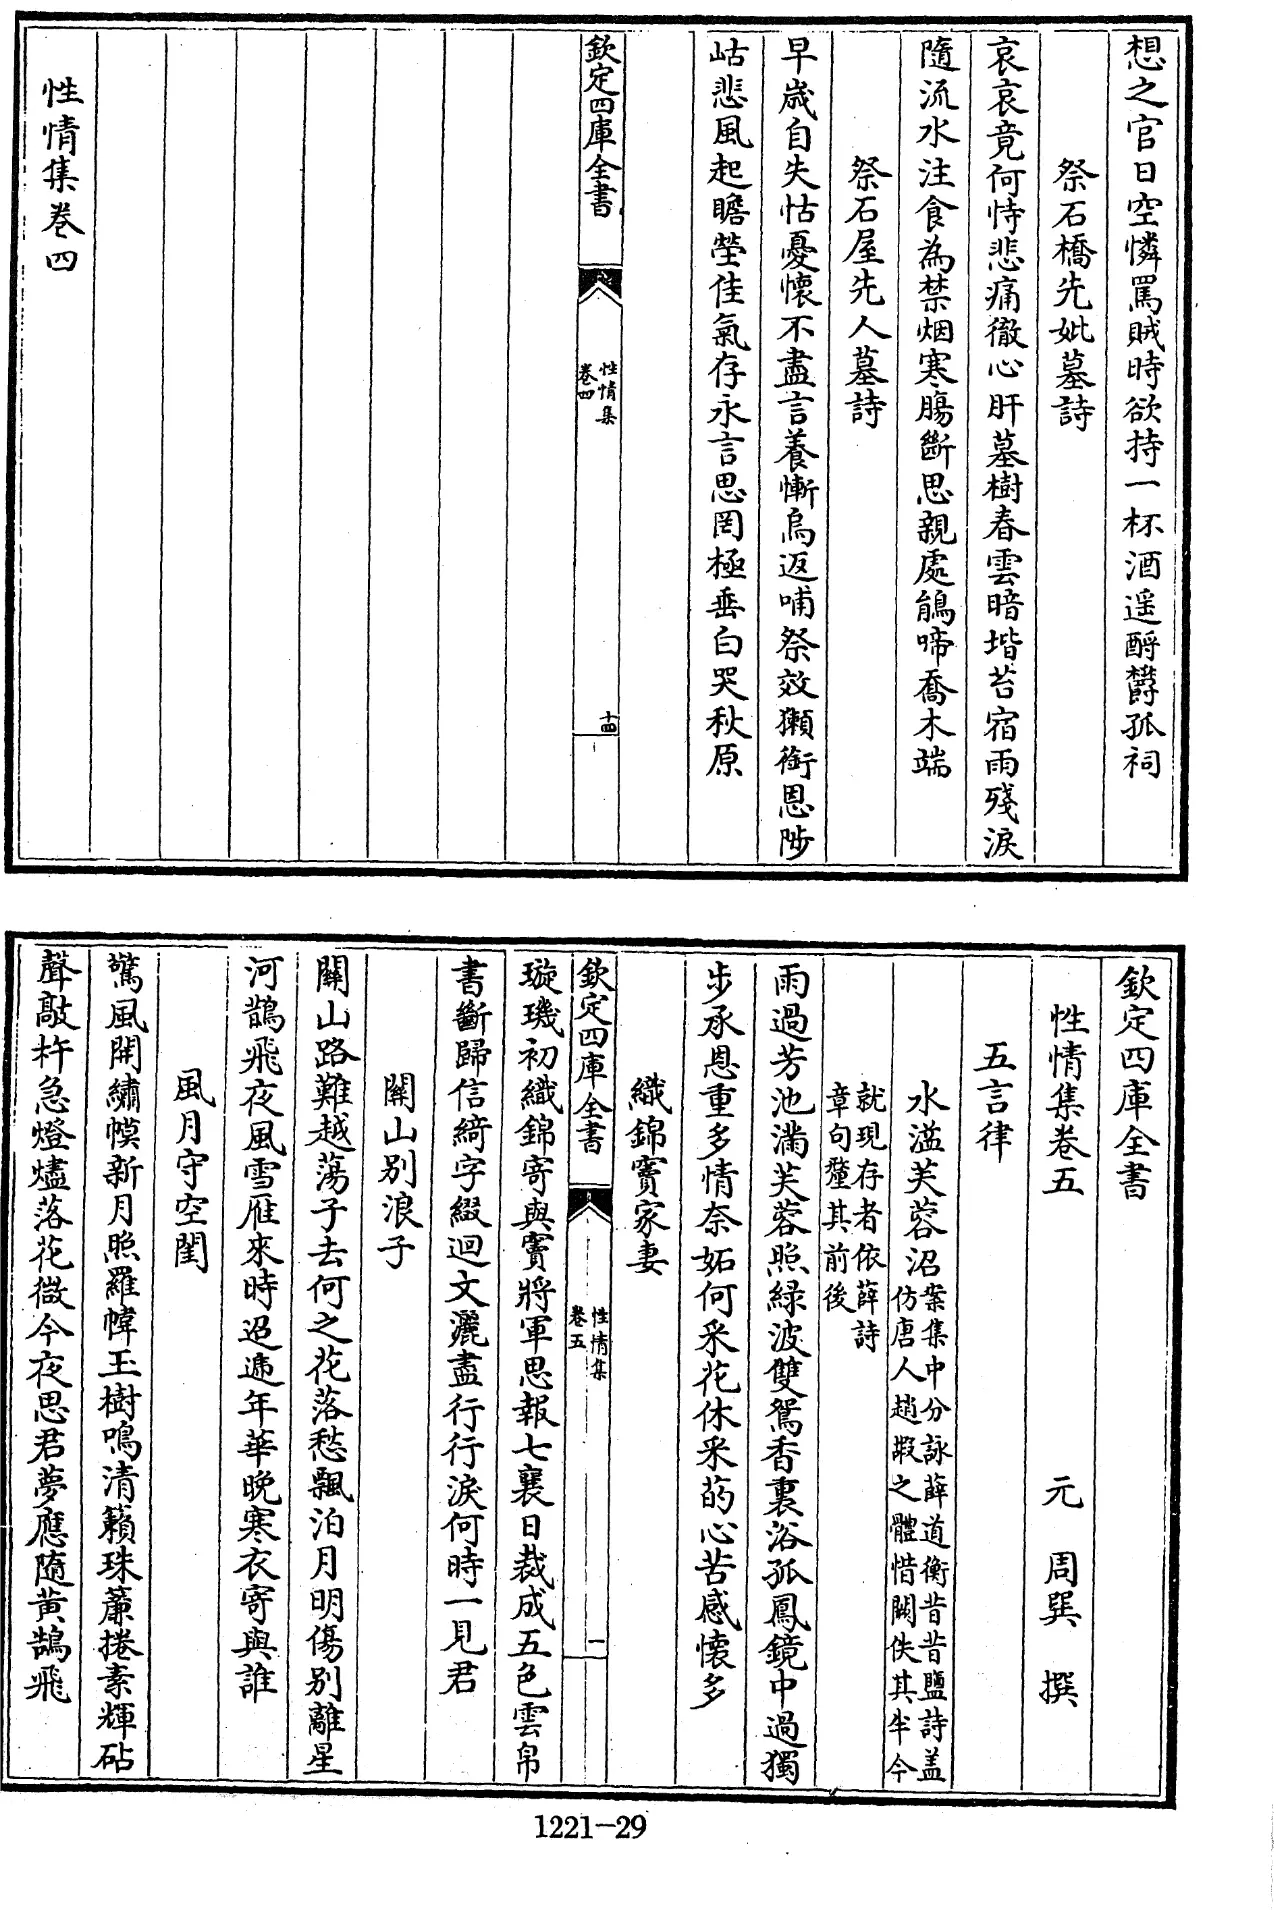 想之官日空憐罵賊時欲持一杯酒遥酹欝孤祠
祭石橋先妣墓詩
哀哀竟何恃悲痛徹心肝墓樹春雲暗堦苔宿雨殘淚
隨流水注食為禁烟寒腸斷思親處鵑啼喬木端
祭石屋先人墓詩
早歲自失怙憂懷不盡言養慚烏返哺祭效獺銜恩陟
岵悲風起瞻塋佳氣存永言思罔極垂白哭秋原
欽定四庫全書
性情集
卷四
十四
性情集卷四
欽定四庫全書
性情集卷五
元 周巽 撰
五言律
水溢芙蓉沼
案集中分詠薛道衡昔昔鹽詩盖
仿唐人趙嘏之體惜闕佚其半今
就現存者依薛詩
章句釐其前後
雨過芳池滿芙蓉照緑波雙鴛香裏浴孤鳳鏡中過獨
步承恩重多情奈妬何采花休采菂心苦感懷多
織錦竇家妻
欽定四庫全書
性情集
卷五
一
璇璣初織錦寄與竇將軍思報七襄日裁成五色雲帛
書斷歸信綺字綴迴文灑盡行行淚何時一見君
關山别浪子
關山路難越蕩子去何之花落愁飄泊月明傷别離星
河鵲飛夜風雪雁來時迢遞年華晚寒衣寄與誰
風月守空閨
驚風開繡幙新月照羅幃玉樹鳴清籟珠簾捲素輝砧
聲敲杵急燈燼落花微今夜思君夢應隨黄鵠飛
1221-29